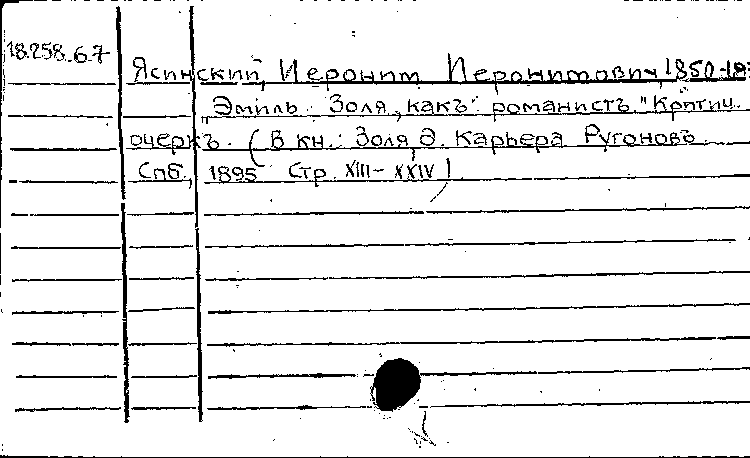 18.258.6.7
Ясинский, Иероним Иеронимович, 1850-19
"Эмиль Золя, какъ романистъ." Критич.
очеркъ. (В кн.: Золя, Э. Карьера Ругоновъ
Спб., 1895 Стр. XIII-XXIV)